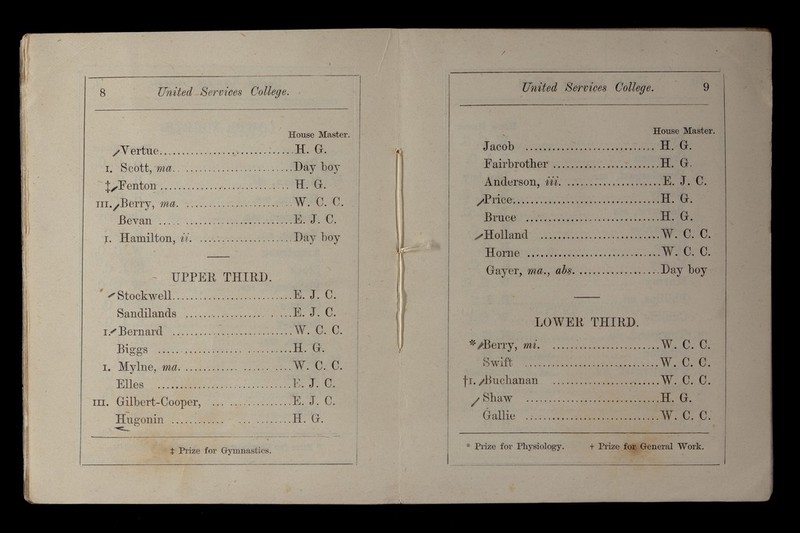 8 United Services College.
House Master.
Vertue. H. G.
I. Scott, ma. Day boy
‡ Fenton H. G.
III. Berry, ma. W. C. C.
Bevan E. J. C.
I. Hamilton, ii. Day boy
UPPER THIRD.
Stockwell. E. J. C.
Sandilands E. J. C.
I. Bernard W. C. C.
Biggs H. G.
I. Mylne, ma. W. C. C.
Elles E. J. C.
III. Gilbert-Cooper, E. J. C.
Hugonin H. G.
‡ Prize for Gymnastics.
United Services College. 9
House Master.
Jacob H. G.
Fairbrother H. G.
Anderson, iii. E. J. C.
Price. H. G.
Bruce H. G.
Holland W. C. C.
Horne W. C. C.
Gayer, ma., abs. Day boy
LOWER THIRD.
* Berry, mi. W. C. C.
Swift W. C. C.
† I. Buchanan W. C. C.
Shaw H. G.
Gallie W. C. C.
* Prize for Physiology. + Prize for General Work.